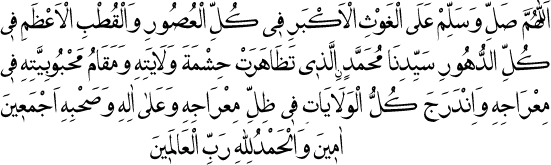 اَللّٰهُمَّ صَلِّ وَسَلِّمْ عَلَى الْغَوْثِ الْاَكْبَرِ فِى كُلِّ الْعُصُورِ وَالْقُطْبِ الْاَعْظَمِ فِى
كُلِّ الدُّهُورِ سَيِّدِنَا مُحَمَّدٍ ۨالَّذِى تَظَاهَرَتْ حِشْمَةُ وَلَايَتِهِ وَمَقَامُ مَحْبُوبِيَّتِهِ فِى
مِعْرَاجِهِ وَانْدَرَجَ كُلُّ الْوَلَايَاتِ فِى ظِلِّ مِعْرَاجِهِ وَعَلٰى اٰلِهِ وَصَحْبِهِ اَجْمَعِينَ
اٰمِينَ وَالْحَمْدُ لِلّٰهِ رَبِّ الْعَالَمِينَ